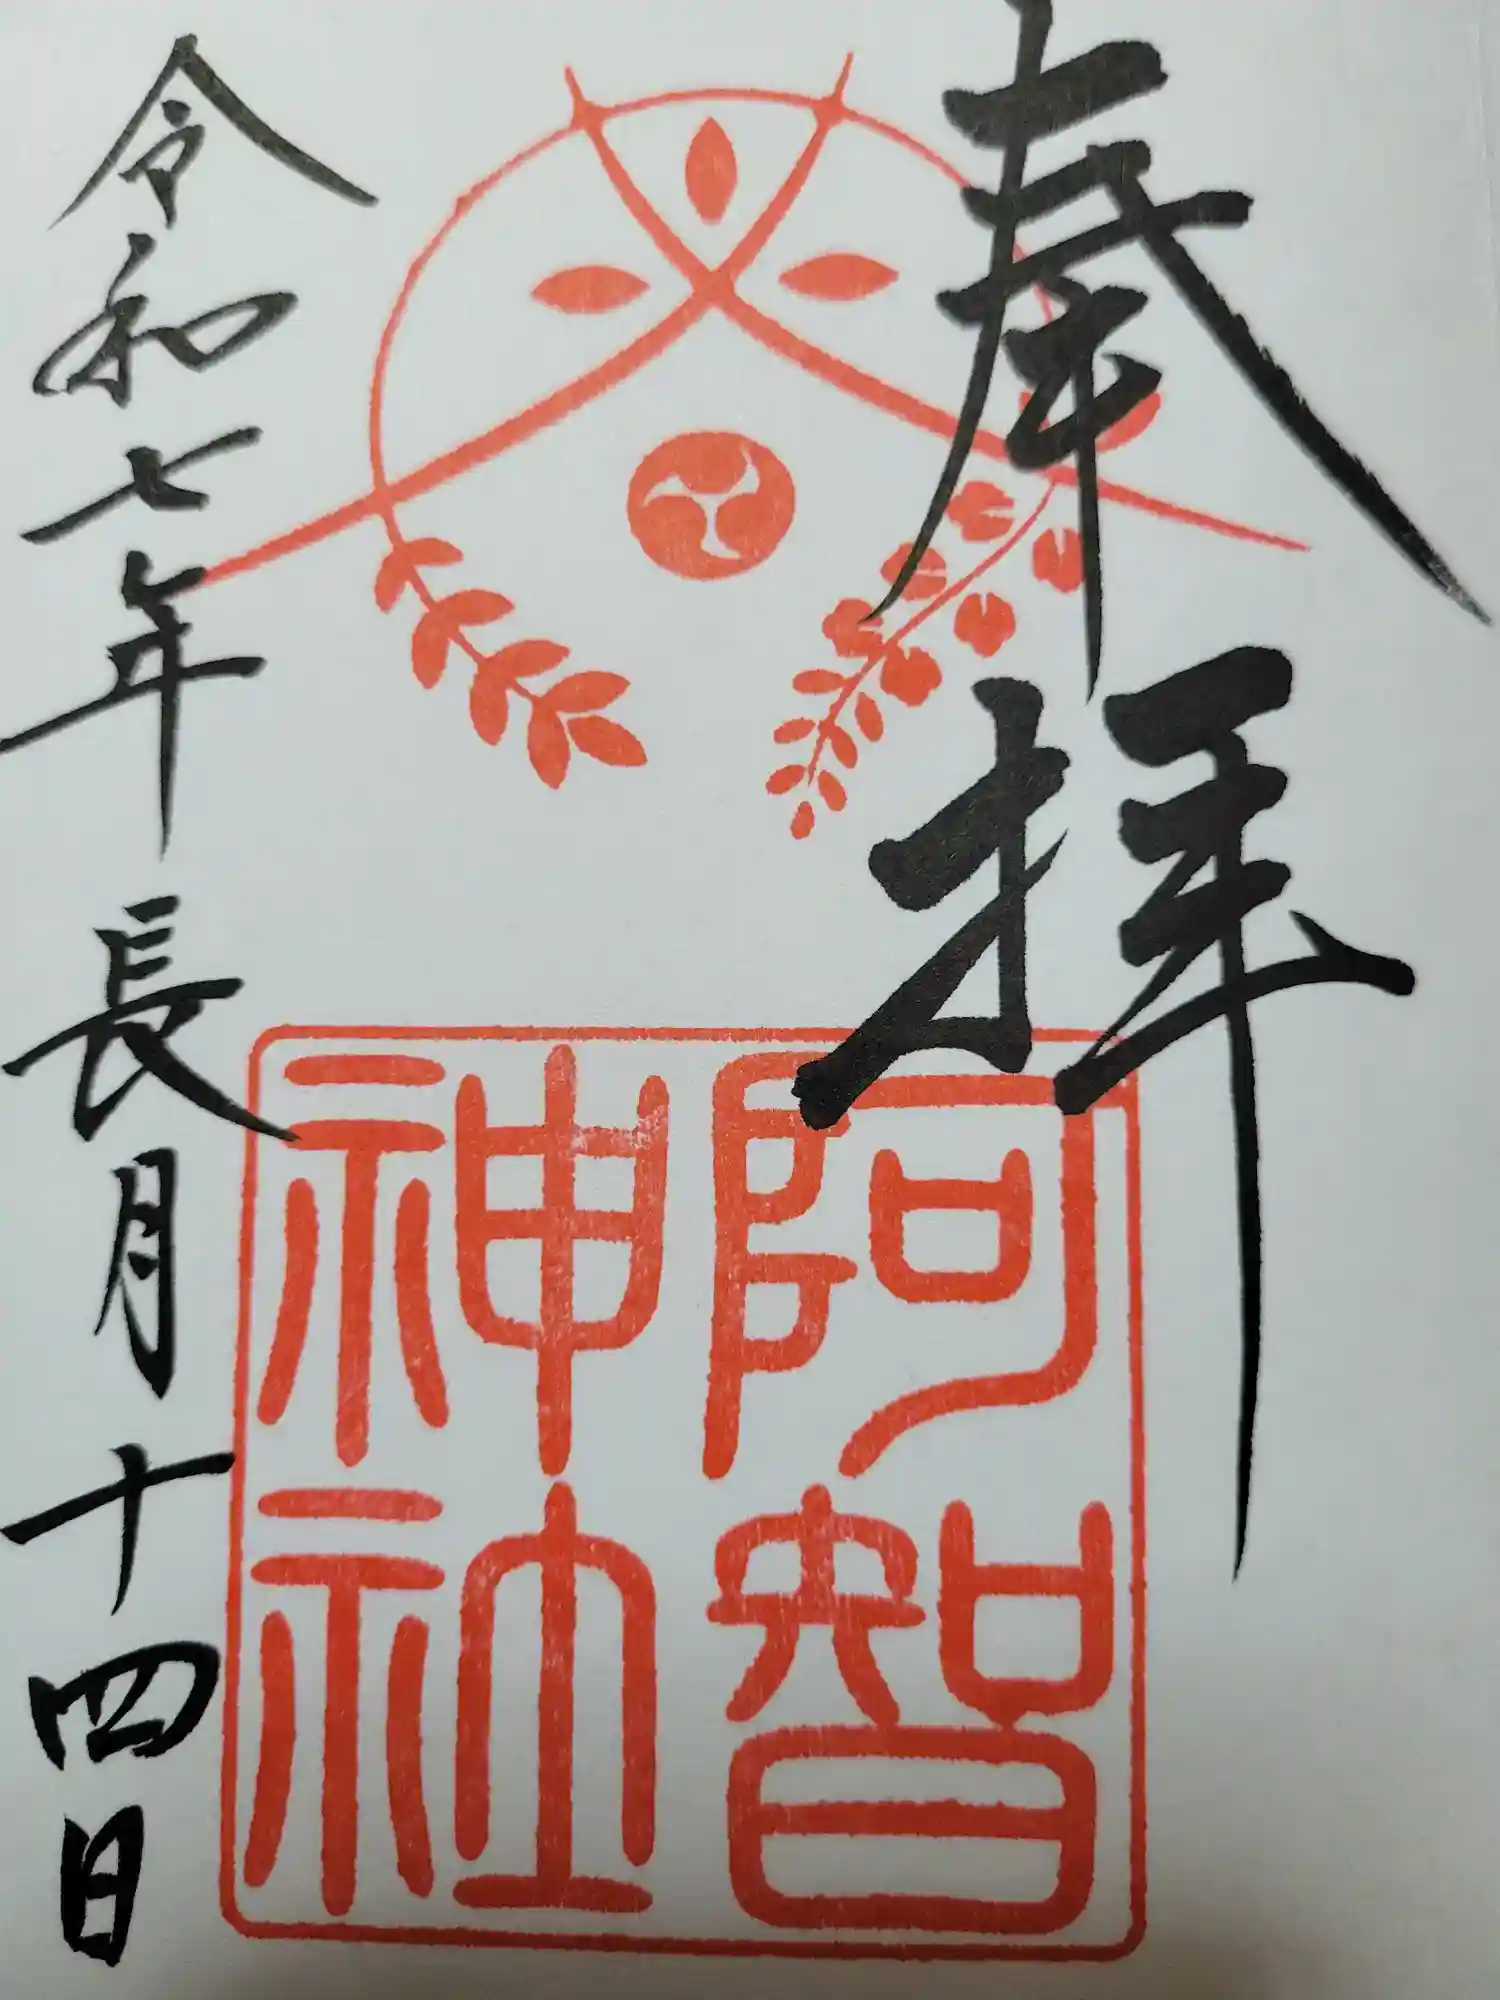 奉拝
阿智神社
令和七年長月十四日